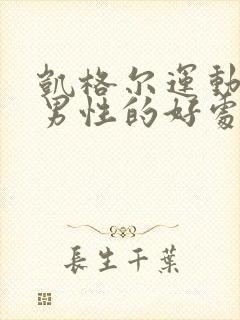 凱格尔運動
男性的好處
長生千葉